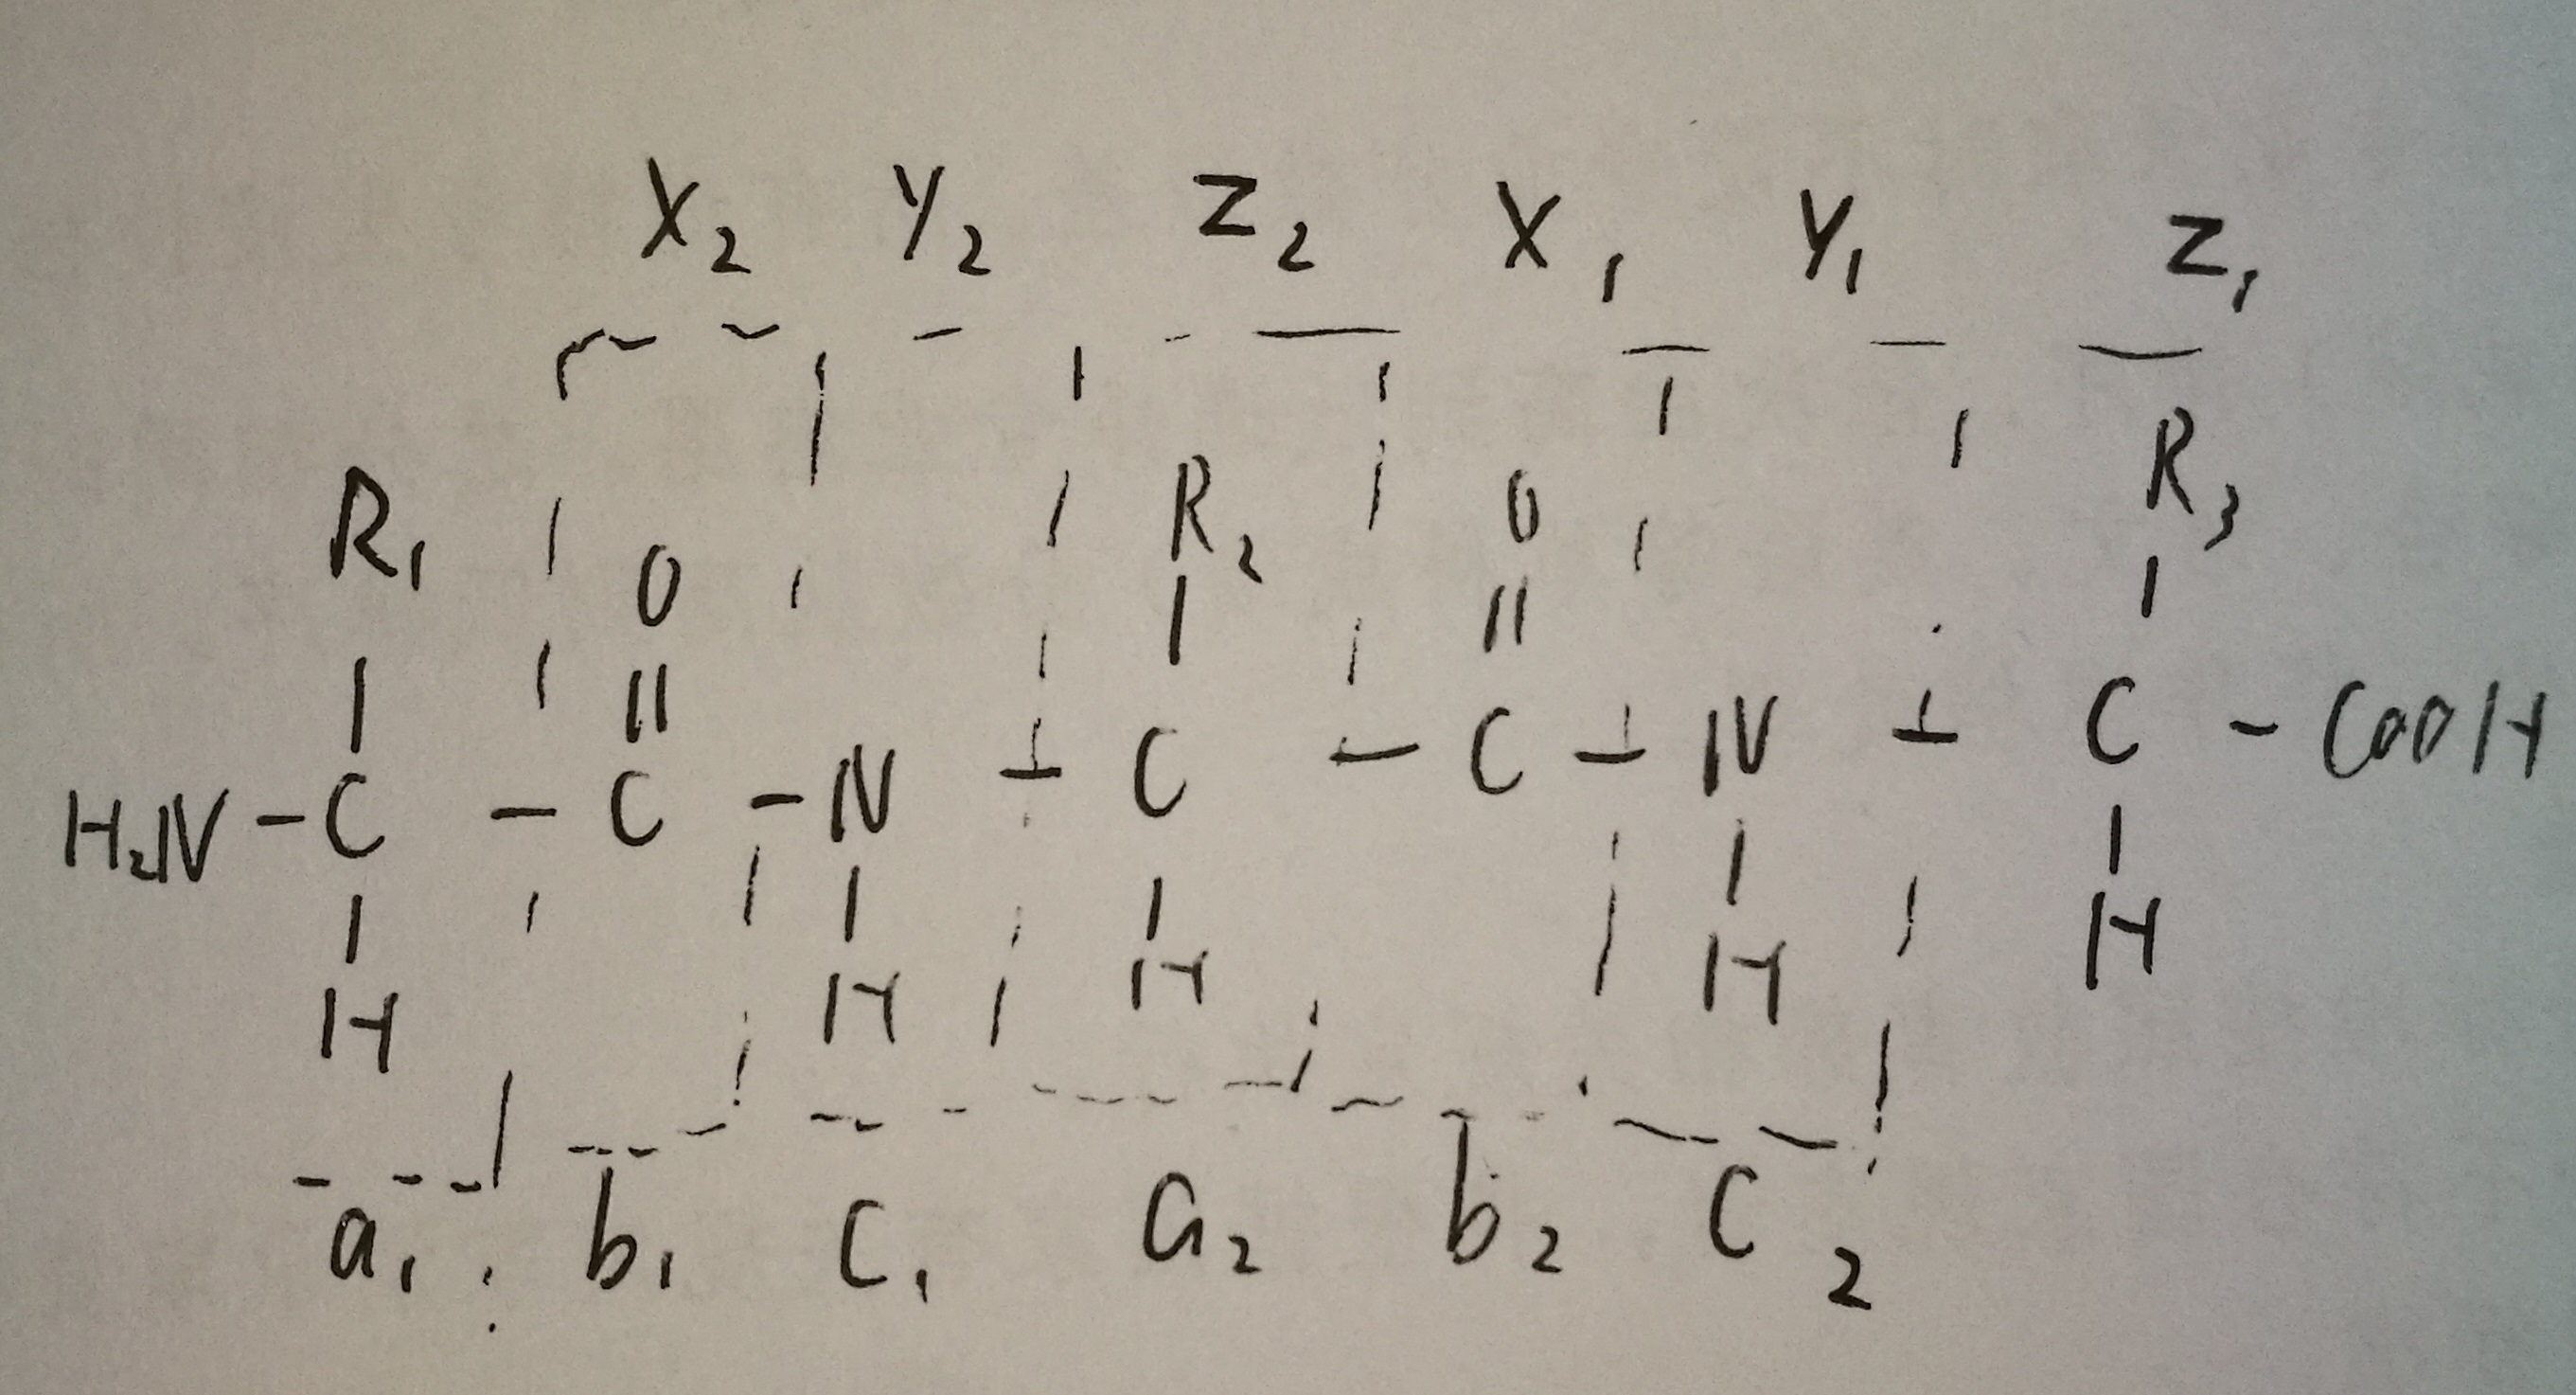 X₂ Y₂ Z₂ X₁ Y₁ Z₁
R₁ O R₂ O R₃
H₂N-C-C-N-C-C-N-C-COOH
H H H H H
a₁ b₁ c₁ a₂ b₂ c₂